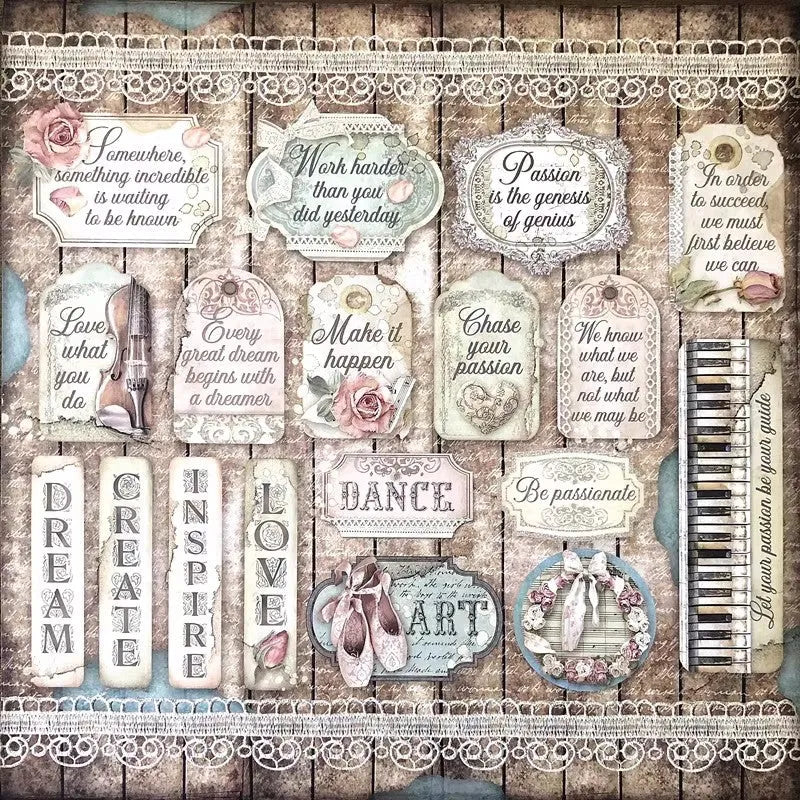 Somewhere,
something incredible
is waiting
to be known
Work harder
than you
did yesterday
Passion
is the genesis
of genius
In order
to succeed,
we must
first believe
we can
Love
what
you
do
Every
great dream
begins with
a dreamer
Make it
happen
Chase
your
passion
We know
what we
are, but
not what
we may be
Let your passion be your guide
DREAM
CREATE
INSPIRE
LOVE
DANCE
Be passionate
ART